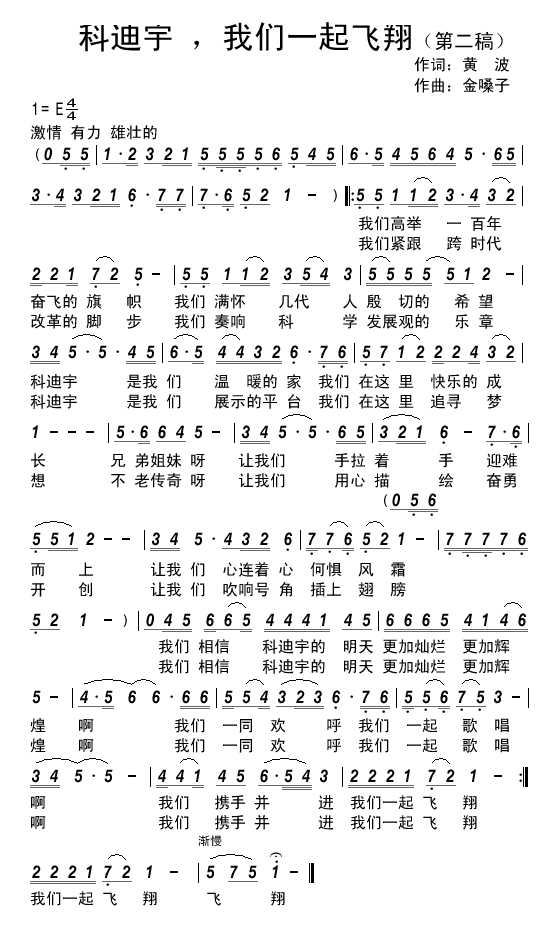 科迪宇 ，我们一起飞翔（第二稿）
作词：黄 波
作曲：金嗓子
1= E 4/4
激情 有力 雄壮的
(0 5 5 | 1·2 3 2 1 5 5 5 5 6 5 4 5 | 6·5 4 5 6 4 5·6 5 |
3·4 3 2 1 6·7 7 | 7·6 5 2 1 － ) ‖: 5 5 1 1 2 3·4 3 2 |
我们高举 一 百年
我们紧跟 跨 时代
2 2 1 7 2 5 － | 5 5 1 1 2 3 5 4 3 | 5 5 5 5 5 1 2 － |
奋飞的 旗 帜 我们 满怀 几代 人 殷 切的 希 望
改革的 脚 步 我们 奏响 科 学 发展观的 乐 章
3 4 5·5·4 5 | 6·5 4 4 3 2 6·7 6 | 5 7 1 2 2 2 4 3 2 |
科迪宇 是我 们 温 暖的 家 我们 在这 里 快乐的 成
科迪宇 是我 们 展示的平 台 我们 在这 里 追寻 梦
1 － － － | 5·6 6 4 5 － | 3 4 5·5·6 5 | 3 2 1 6 － 7·6 |
长 兄 弟姐妹 呀 让我们 手拉 着 手 迎难
想 不 老传奇 呀 让我们 用心 描 绘 奋勇
(0 5 6
5 5 1 2 － － | 3 4 5·4 3 2 6 | 7 7 6 5 2 1 － | 7 7 7 7 6
而 上 让我 们 心连着 心 何惧 风 霜
开 创 让我 们 吹响号 角 插上 翅 膀
5 2 1 － ) | 0 4 5 6 6 5 4 4 4 1 4 5 | 6 6 6 5 4 1 4 6 |
我们 相信 科迪宇的 明天 更加灿烂 更加辉
我们 相信 科迪宇的 明天 更加灿烂 更加辉
5 － | 4·5 6 6·6 6 | 5 5 4 3 2 3 6·7 6 | 5 5 6 7 5 3 － |
煌 啊 我们 一同 欢 呼 我们 一起 歌 唱
煌 啊 我们 一同 欢 呼 我们 一起 歌 唱
3 4 5·5 － | 4 4 1 4 5 6·5 4 3 | 2 2 2 1 7 2 1 － :‖
啊 我们 携手 并 进 我们一起 飞 翔
啊 我们 携手 并 进 我们一起 飞 翔
渐慢
2 2 2 1 7 2 1 － | 5 7 5 1 － ‖
我们一起 飞 翔 飞 翔